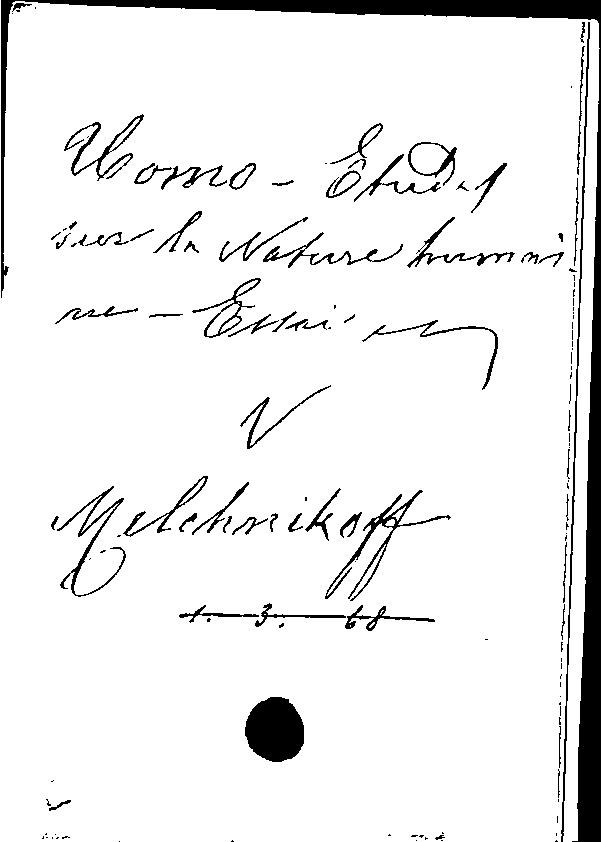 Uomo - Etudes
sur la Nature humai
ne - Essai
V
Melchnikoff
1. 3. 68